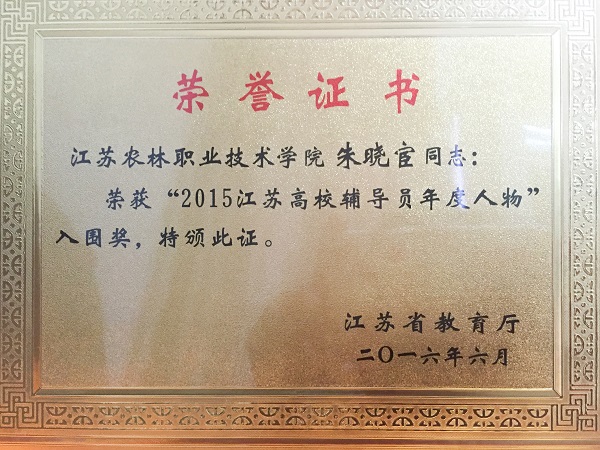 荣誉证书
江苏农林职业技术学院朱晓宦同志：
荣获“2015江苏高校辅导员年度人物”
入围奖，特颁此证。
江苏省教育厅
二〇一六年六月